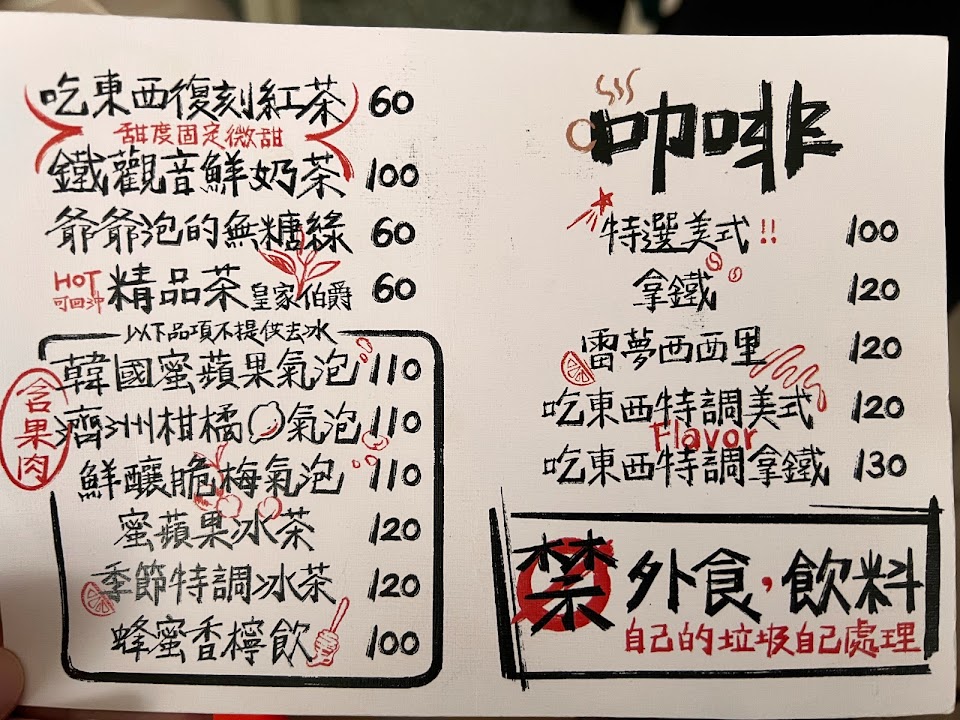 吃東西復刻紅茶 60
甜度固定微甜
鐵觀音鮮奶茶 100
爺爺泡的無糖綠 60
HOT 可回沖 精品茶 皇家伯爵 60
以下品項不提供去冰
含果肉
韓國蜜蘋果氣泡 110
濟洲柑橘氣泡 110
鮮釀脆梅氣泡 110
蜜蘋果冰茶 120
季節特調冰茶 120
蜂蜜香檸飲 100
咖啡
特選美式!! 100
拿鐵 120
雷夢西西里 120
吃東西特調美式 120
Flavor
吃東西特調拿鐵 130
禁外食,飲料
自己的垃圾自己處理